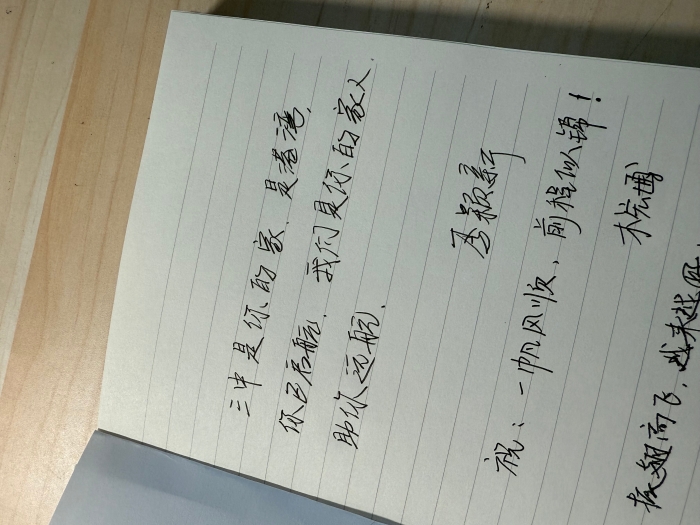 三中是你的家,是港湾,
你已启航,我们是你的家人,
助你远航,
李颖新
祝:一帆风顺、前程似锦!
振翅高飞,越来越